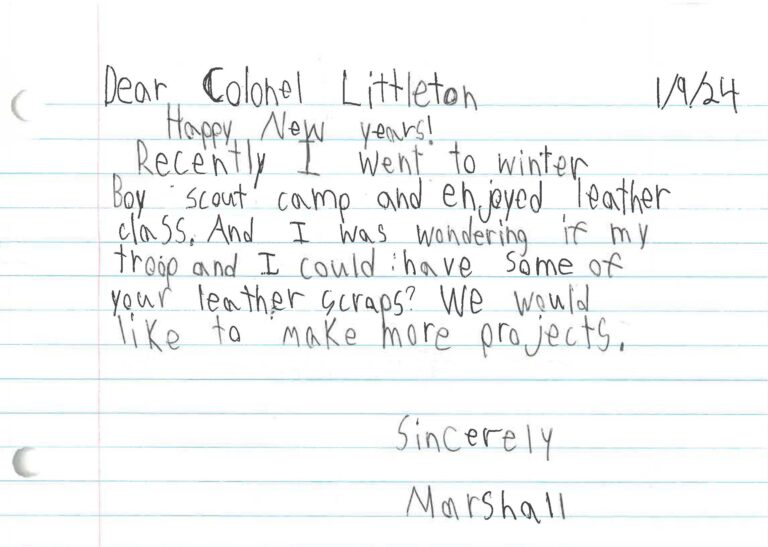 Dear Colonel Littleton 1/9/24
Happy New years!
Recently I went to winter
Boy scout camp and enjoyed leather
class. And I was wondering if my
troop and I could have some of
your leather scraps? We would
like to make more projects.
Sincerely
Marshall